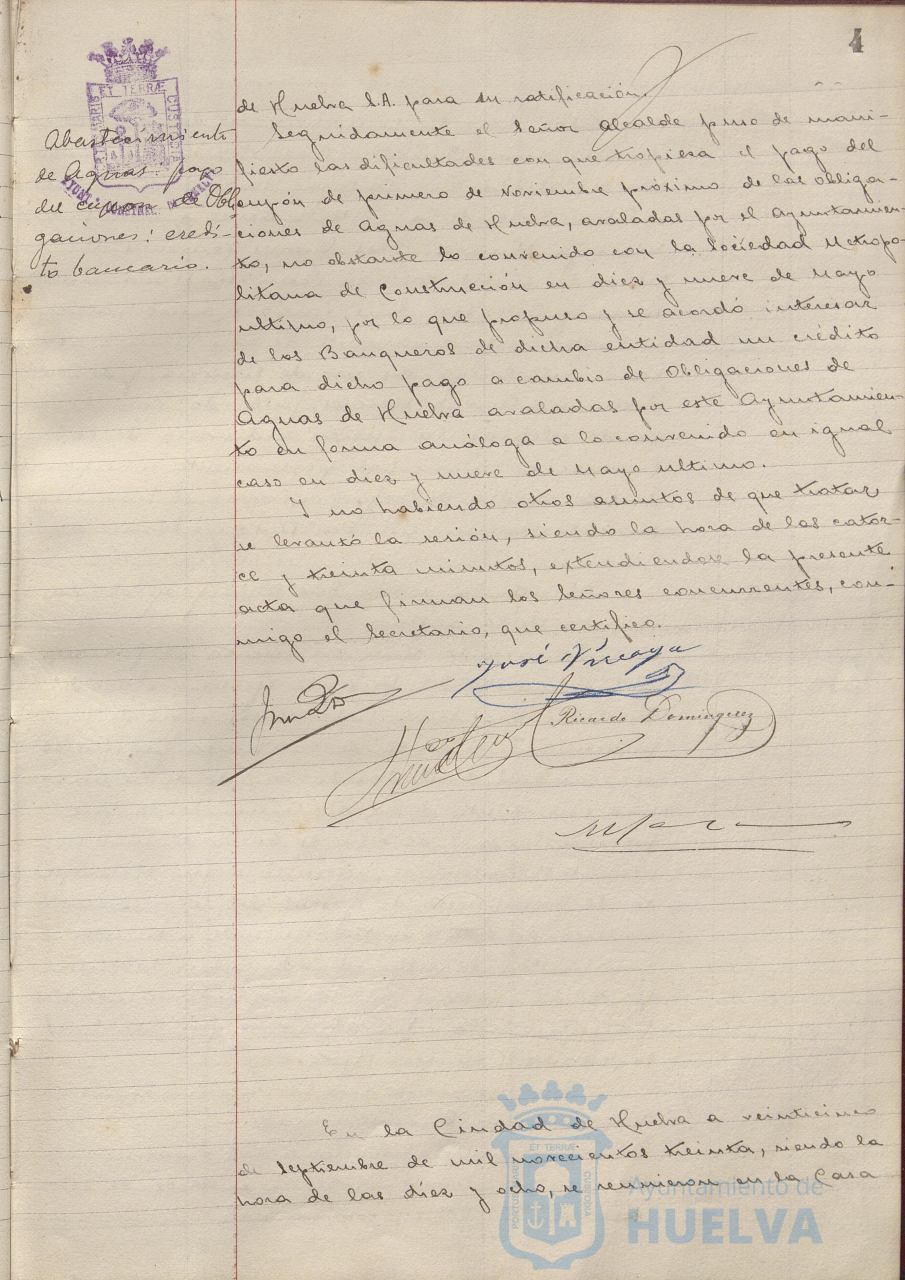 4
de Huelva S.A. para su ratificación.
Seguidamente el Señor Alcalde puso de mani-
fiesto las dificultades con que tropieza el pago del
cupón de primero de Noviembre próximo de las obliga-
ciones de Aguas de Huelva, avaladas por el Ayuntamien-
to, no obstante lo convenido con la Sociedad Metropo-
litana de Construcción en diez y nueve de Mayo
ultimo, por lo que propuso y se acordó interesar
de los Banqueros de dicha entidad un crédito
para dicho pago a cambio de Obligaciones de
Aguas de Huelva avaladas por este Ayuntamien-
to en forma análoga a lo convenido en igual
caso en diez y nueve de Mayo ultimo.
Y no habiendo otros asuntos de que tratar
se levantó la sesión, siendo la hora de las cator-
ce y treinta minutos, extendiendose la presente
acta que firman los Señores concurrentes, con-
migo el Secretario, que certifico.
Abastecimiento
de Aguas: pago
del cupon de Obli
gaciones: credi-
to bancario.
ET TERRÆ
CUSTODIA
José Vizcaya
Ricardo Dominguez
En la Ciudad de Huelva a veinticinco
de Septiembre de mil novecientos treinta, siendo la
hora de las diez y ocho, se reunieron en la Casa
ET TERRÆ
CUSTODIA
Ayuntamiento de
HUELVA